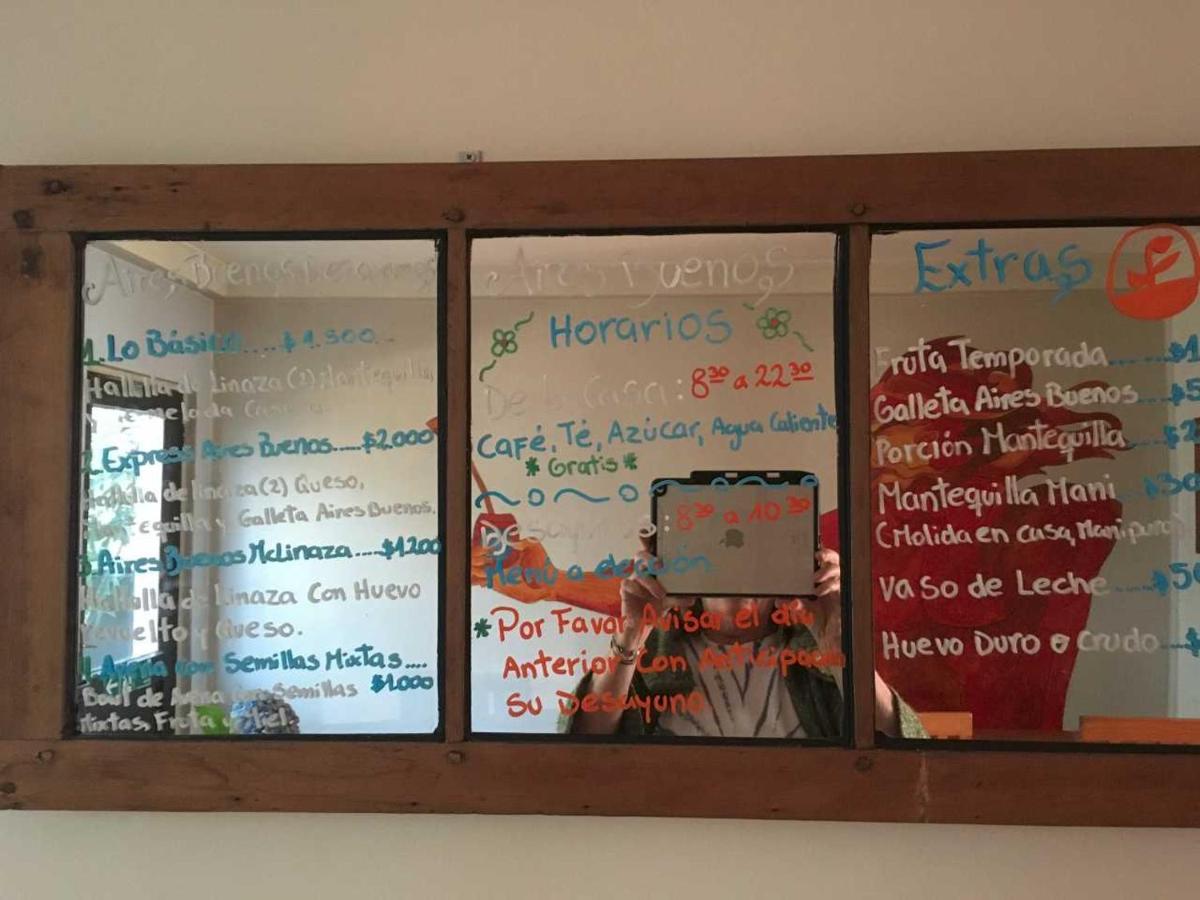 Aires Buenos Desayunos
1. Lo Básico.....$1.500..
Hallulla de Linaza (2), Mantequilla,
y Mermelada Casera.
2. Express Aires Buenos.....$2.000
Hallulla de linaza (2) Queso,
Mantequilla y Galleta Aires Buenos.
3. Aires Buenos McLinaza....$1.200
Hallulla de Linaza Con Huevo
Revuelto y Queso.
4. con Semillas Mixtas....
$1.000
Boul de con Semillas
Mixtas, Fruta y Miel.
Aires Buenos
Horarios
De Casa: 8³⁰ a 22³⁰
Café, Té, Azúcar, Agua Caliente
* Gratis *
Desayunos: 8³⁰ a 10³⁰
Menú a elección
* Por Favor Avisar el día
Anterior Con Anticipación
Su Desayuno
Extras
Fruta Temporada.......$1
Galleta Aires Buenos.....$5
Porción Mantequilla....$2
Mantequilla Mani ....$30
(Molida en casa, Mani puro)
Vaso de Leche.....$50
Huevo Duro o Crudo....$